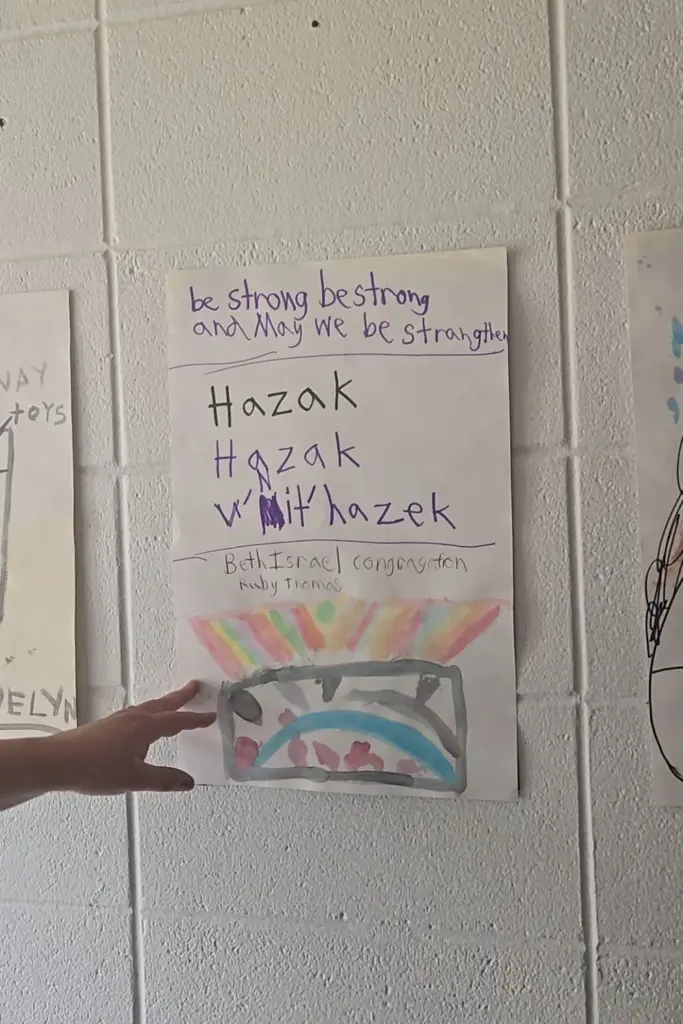 WAY
toys
DELYN
be strong be strong
and May we be strangthen
Hazak
Hazak
v' it'hazek
Beth Israel congragation
Ruby Thomas